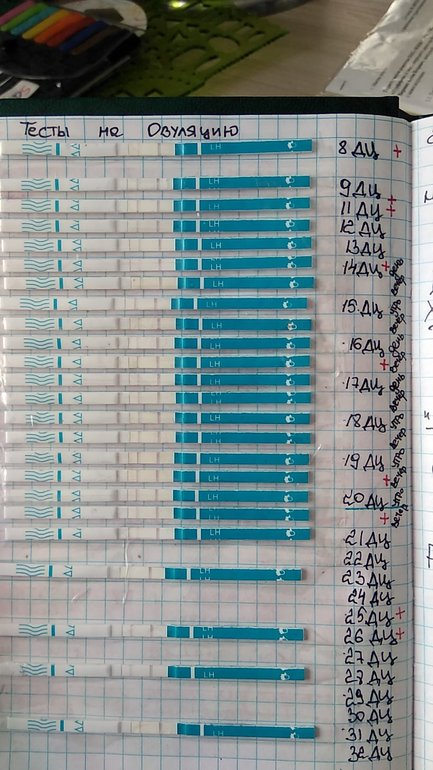 Тесты на Овуляцию
LH 8 ДЦ +
LH 9 ДЦ
LH 11 ДЦ +
LH 12 ДЦ
LH 13 ДЦ
LH 14 ДЦ + день
LH вечер
LH 15 ДЦ утро
LH вечер
LH 16 ДЦ день
LH + вечер
LH 17 ДЦ день
LH вечер
LH 18 ДЦ утро
LH вечер
LH 19 ДЦ утро
LH + вечер
LH 20 ДЦ утро
LH + вечер
LH 21 ДЦ
22 ДЦ
LH 23 ДЦ
24 ДЦ
25 ДЦ +
LH 26 ДЦ +
27 ДЦ
LH 28 ДЦ
29 ДЦ
30 ДЦ
LH 31 ДЦ
32 ДЦ